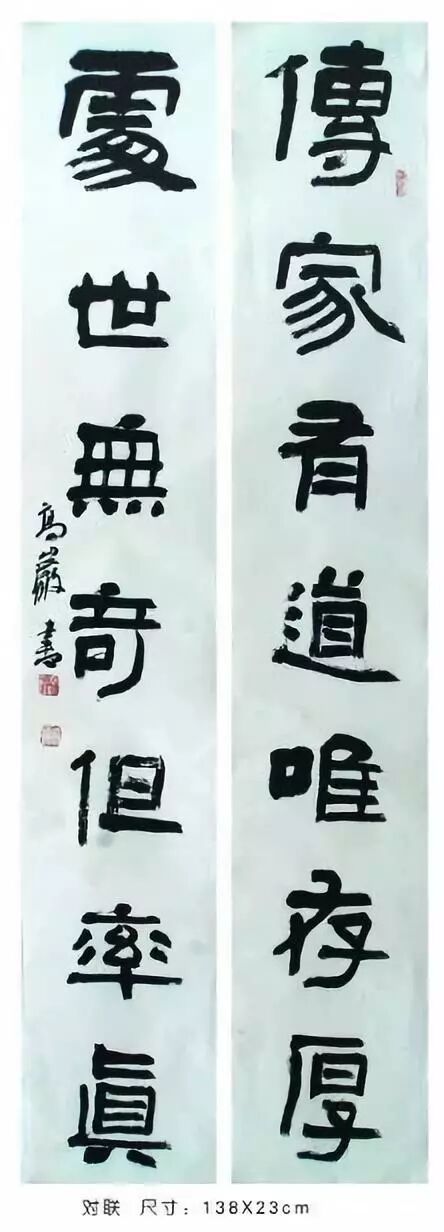 傳家有道唯存厚
處世無奇但率真
高巖書
对联 尺寸：138X23cm